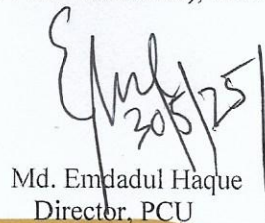 30/5/25
Md. Emdadul Haque
Director, PCU